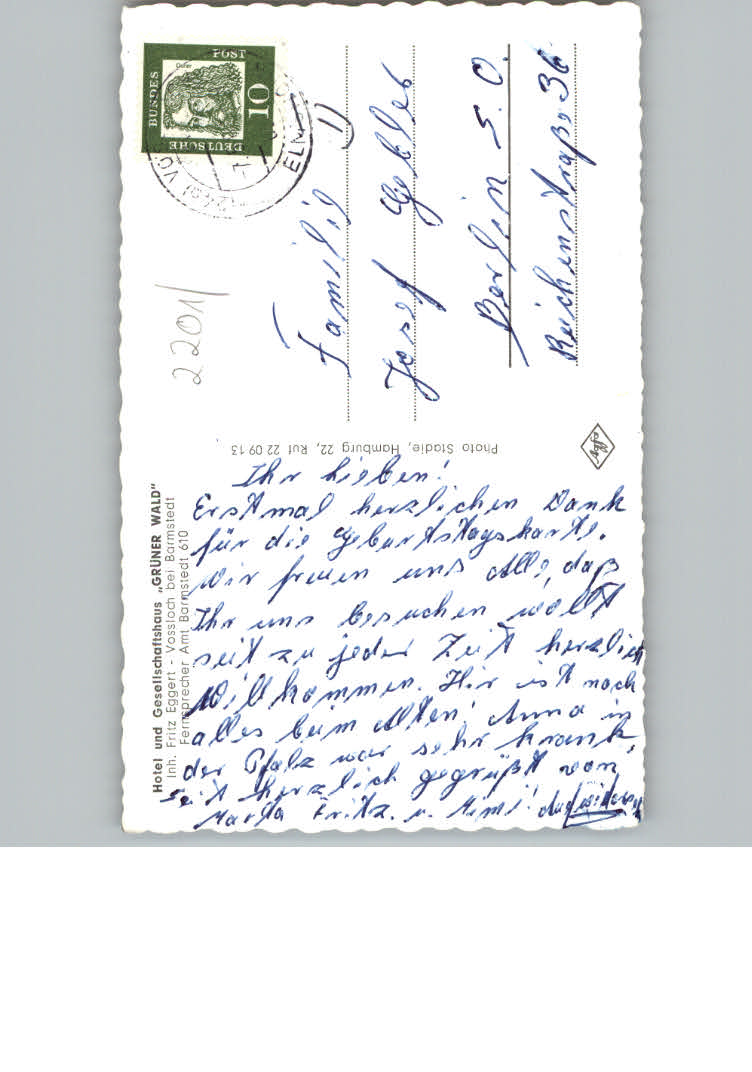 Hotel und Gesellschaftshaus „GRÜNER WALD"
Inh. Fritz Eggert - Vossloch bei Barmstedt
Fernsprecher Amt Barmstedt 610
Ihr Lieben!
Erstmal herzlichen Dank
für die Geburtstagskarte.
Wir freuen uns Alle, daß
Ihr uns besuchen wollt
seit zu jeder Zeit herzlich
Willkommen. Hir ist noch
alles beim Alten! Anna in
der Pfalz war sehr krank,
Seit herzlich gegrüßt von
Marta Fritz. u. Mimi!
Photo Stadie, Hamburg 22, Ruf 22 09 13
Agfa
2201/
BUNDES
POST
DEUTSCHE
10
Dürer
ELM
Familie
Josef
Berlin S. O.
36